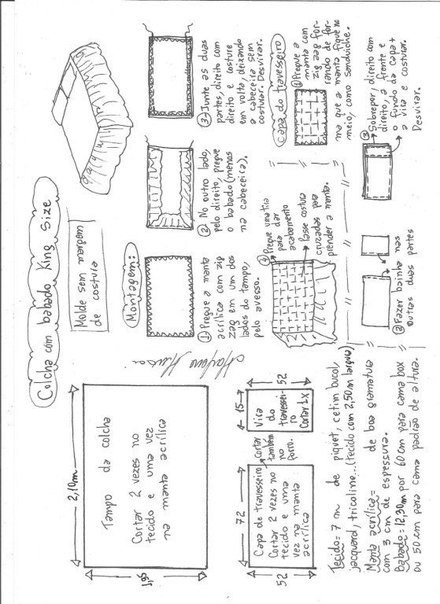 Colcha com babado King Size
Molde sem margem
de costura
2,10m
1,95
Tampo da colcha
Cortar 2 vezes no
tecido e uma vez
na manta acrílica
Montagem:
① Pregue a manta
acrílica com zig
zag em um dos
lados do tampo,
pelo avesso.
② No outro lado,
pelo direito, pregue
o babado (menos
na cabeceira).
③ Junte as duas
partes, direito com
direito e costure
em volta, deixando
a cabeceira sem
costurar. Desvirar.
④ Pregue uma fita
para dar
acabamento
Passe costura
cruzadas para
prender a manta.
Capa do travesseiro
① Pregue a
manta com
zig zag for-
rando de for-
ma que a manta fique no
meio, como sanduiche.
② Fazer bainha nas
outras duas partes
③ Sobrepor, direito com
direito, a frente e
o fundo da capa +
a vira e costurar.
Desvirar.
72
52
Capa de travesseiro
Cortar 2 vezes no
tecido e uma
vez na manta
acrílica
Cortar
também
no
forro.
15
52
Vira
do
travessei
ro
Cortar 1x
Tecido = 7 m de piquet, cetim bucol,
jacquard, tricoline...(tecido com 2,50m largura)
Manta acrílica = de boa gramatura
com 3 cm de espessura.
Babado = 12,30m por 60cm para cama box
ou 50cm para cama padrão de altura.